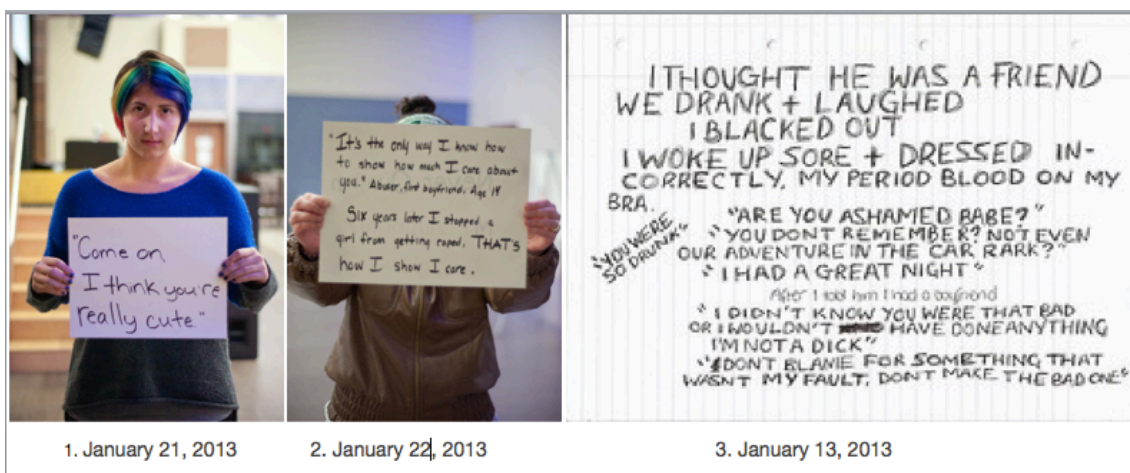 "Come on
I think you're
really cute"
"It's the only way I know how
to show how much I care about
you." Abuser, first boyfriend. Age 19
Six years later I stopped a
girl from getting raped. THAT'S
how I show I care.
I THOUGHT HE WAS A FRIEND
WE DRANK + LAUGHED
I BLACKED OUT
I WOKE UP SORE + DRESSED IN-
CORRECTLY. MY PERIOD BLOOD ON MY
BRA.
"YOU WERE
SO DRUNK"
"ARE YOU ASHAMED BABE?"
"YOU DONT REMEMBER? NOT EVEN
OUR ADVENTURE IN THE CAR RARK?"
"I HAD A GREAT NIGHT"
After I told him I had a boyfriend
"I DIDN'T KNOW YOU WERE THAT BAD
OR I WOULDN'T HAVE DONE ANYTHING
I'M NOT A DICK"
"DONT BLAME FOR SOMETHING THAT
WASNT MY FAULT. DONT MAKE THE BAD ONE"
1. January 21, 2013
2. January 22, 2013
3. January 13, 2013